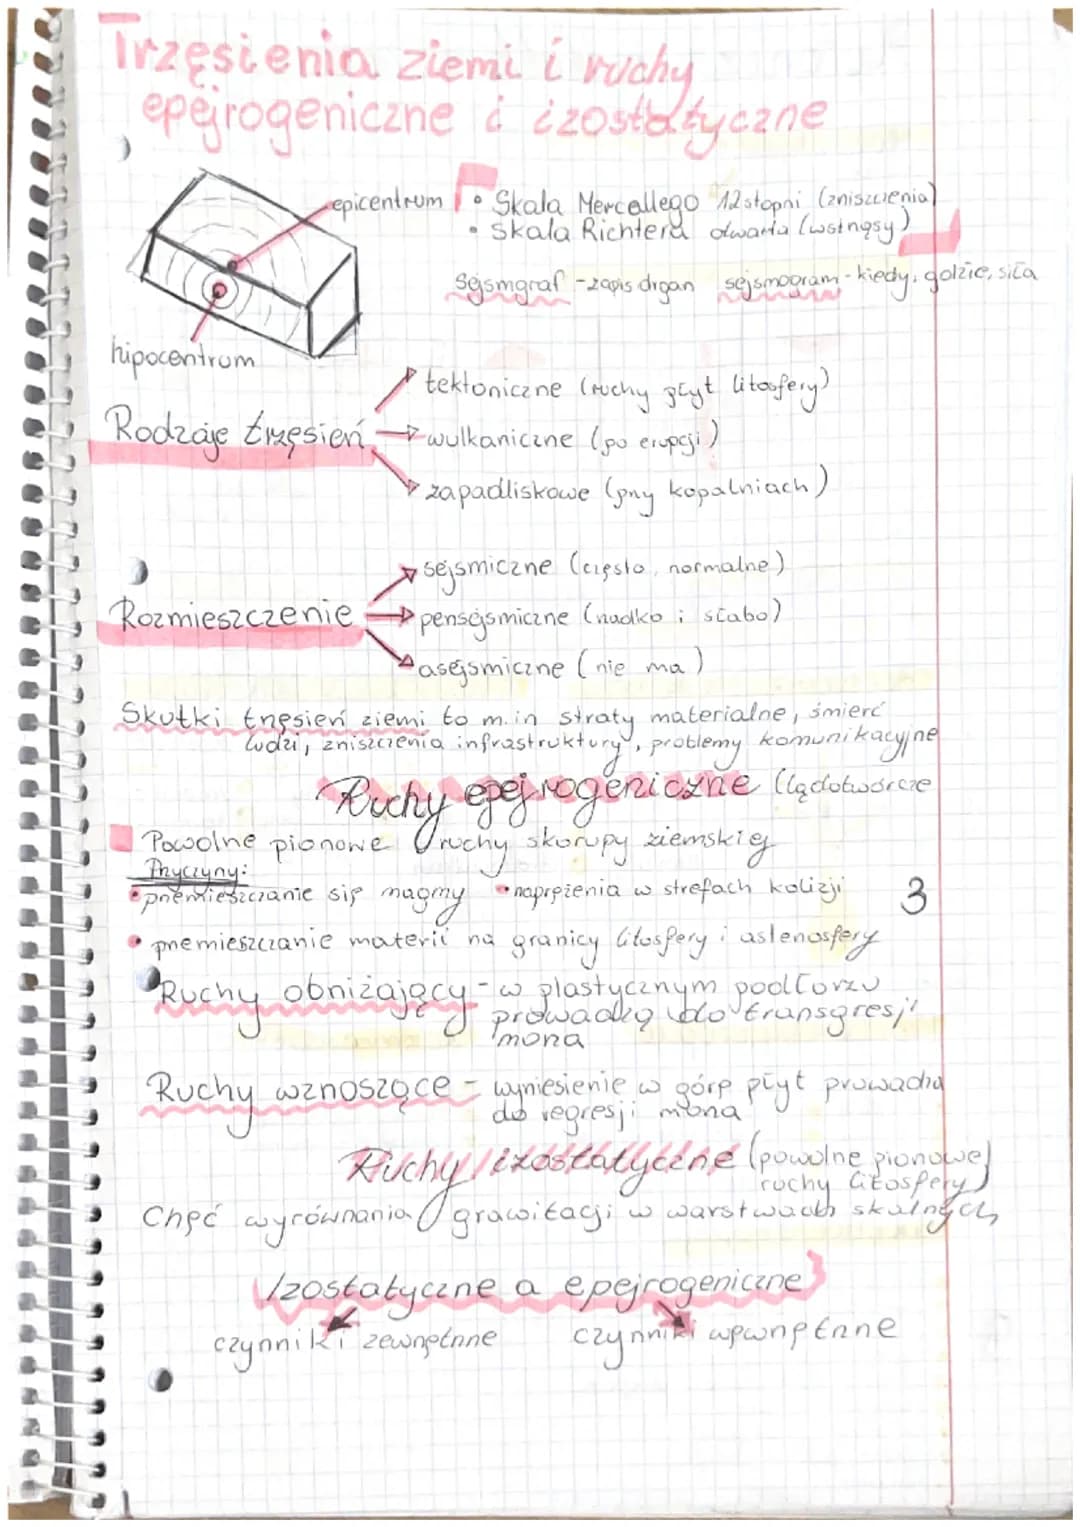 Trzęsienia ziemi i ruchy
epejrogeniczne i izostatyczne
epicentrum
• Skala Mercallego 12 stopni (zniszczenia)
• Skala Richtera otwarta (wstrząsy)
Sejsmgraf - zapis drgań sejsmogram - kiedy, gdzie, siła
hipocentrum
tektoniczne (ruchy płyt litosfery)
Rodzaje trzęsień
wulkaniczne (po erupcji)
zapadliskowe (przy kopalniach)
sejsmiczne (często, normalne)
Rozmieszczenie
pensejsmiczne (rzadko i słabo)
asejsmiczne (nie ma)
Skutki trzęsień ziemi to m.in straty materialne, śmierć
ludzi, zniszczenia infrastruktury, problemy komunikacyjne
Ruchy epejrogeniczne (lądotwórcze
Powolne pionowe ruchy skorupy ziemskiej
Przyczyny:
• przemieszczanie się magmy • naprężenia w strefach kolizji
3
• przemieszczanie materii na granicy litosfery i astenosfery
Ruchy obniżający - w plastycznym podłorzu
prowadzą do transgresji
morza
Ruchy wznoszące - wyniesienie w górę płyt prowadzą
do regresji morza
Ruchy izostatyczne (powolne pionowe
ruchy litosfery)
Chęć wyrównania grawitacji w warstwach skalnych
Izostatyczne a epejrogeniczne
czynniki zewnętrzne czynniki wewnętrzne